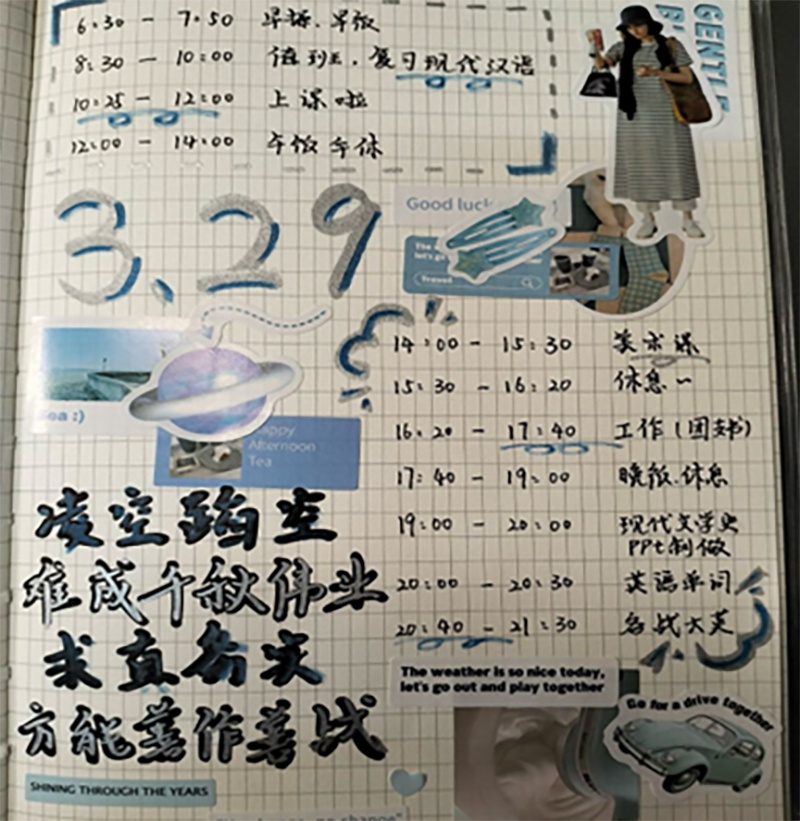 6:30 - 7:50 早操、早饭
8:30 - 10:00 值班、复习现代汉语
10:25 - 12:00 上课啦
12:00 - 14:00 午饭午休
GENTLE
3.29
Good luck
let's go
Travel
14:00 - 15:30 美术课
15:30 - 16:20 休息~
16:20 - 17:40 工作（团支书）
17:40 - 19:00 晚饭、休息
19:00 - 20:00 现代文学史
PPt制做
20:00 - 20:30 英语单词
20:40 - 21:30 备战大英
Sea :)
Happy
Afternoon
Tea
凌空蹈空
难成千秋伟业
求真务实
方能善作善成
SHINING THROUGH THE YEARS
The weather is so nice today,
let's go out and play together
Go for a drive together